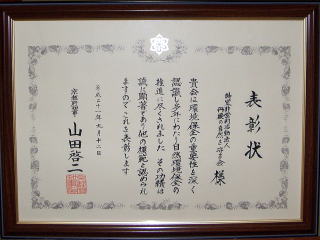 表彰状
特定非営利活動法人
丹波の自然を守る会 様
貴会は環境保全の重要性を深く
認識し多年にわたり自然環境保全の
推進に尽くされました その功績は
誠に顕著であり他の模範と認められ
ますのでこれを表彰します
平成二十一年九月十二日
京都府知事 山田啓二